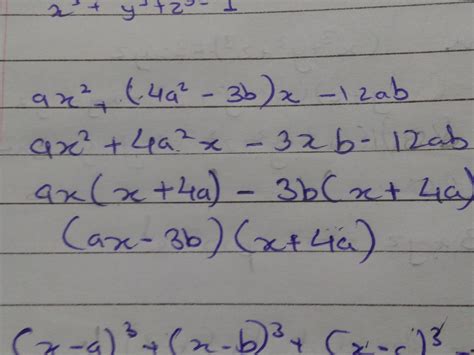 x³ + y³+z³ = 1
ax² + (4a² - 3b)x - 12ab
ax² + 4a²x - 3xb - 12ab
ax(x+4a) - 3b(x + 4a)
(ax-3b)(x+4a)
(x-a)³+(x-b)³+(x-c)³